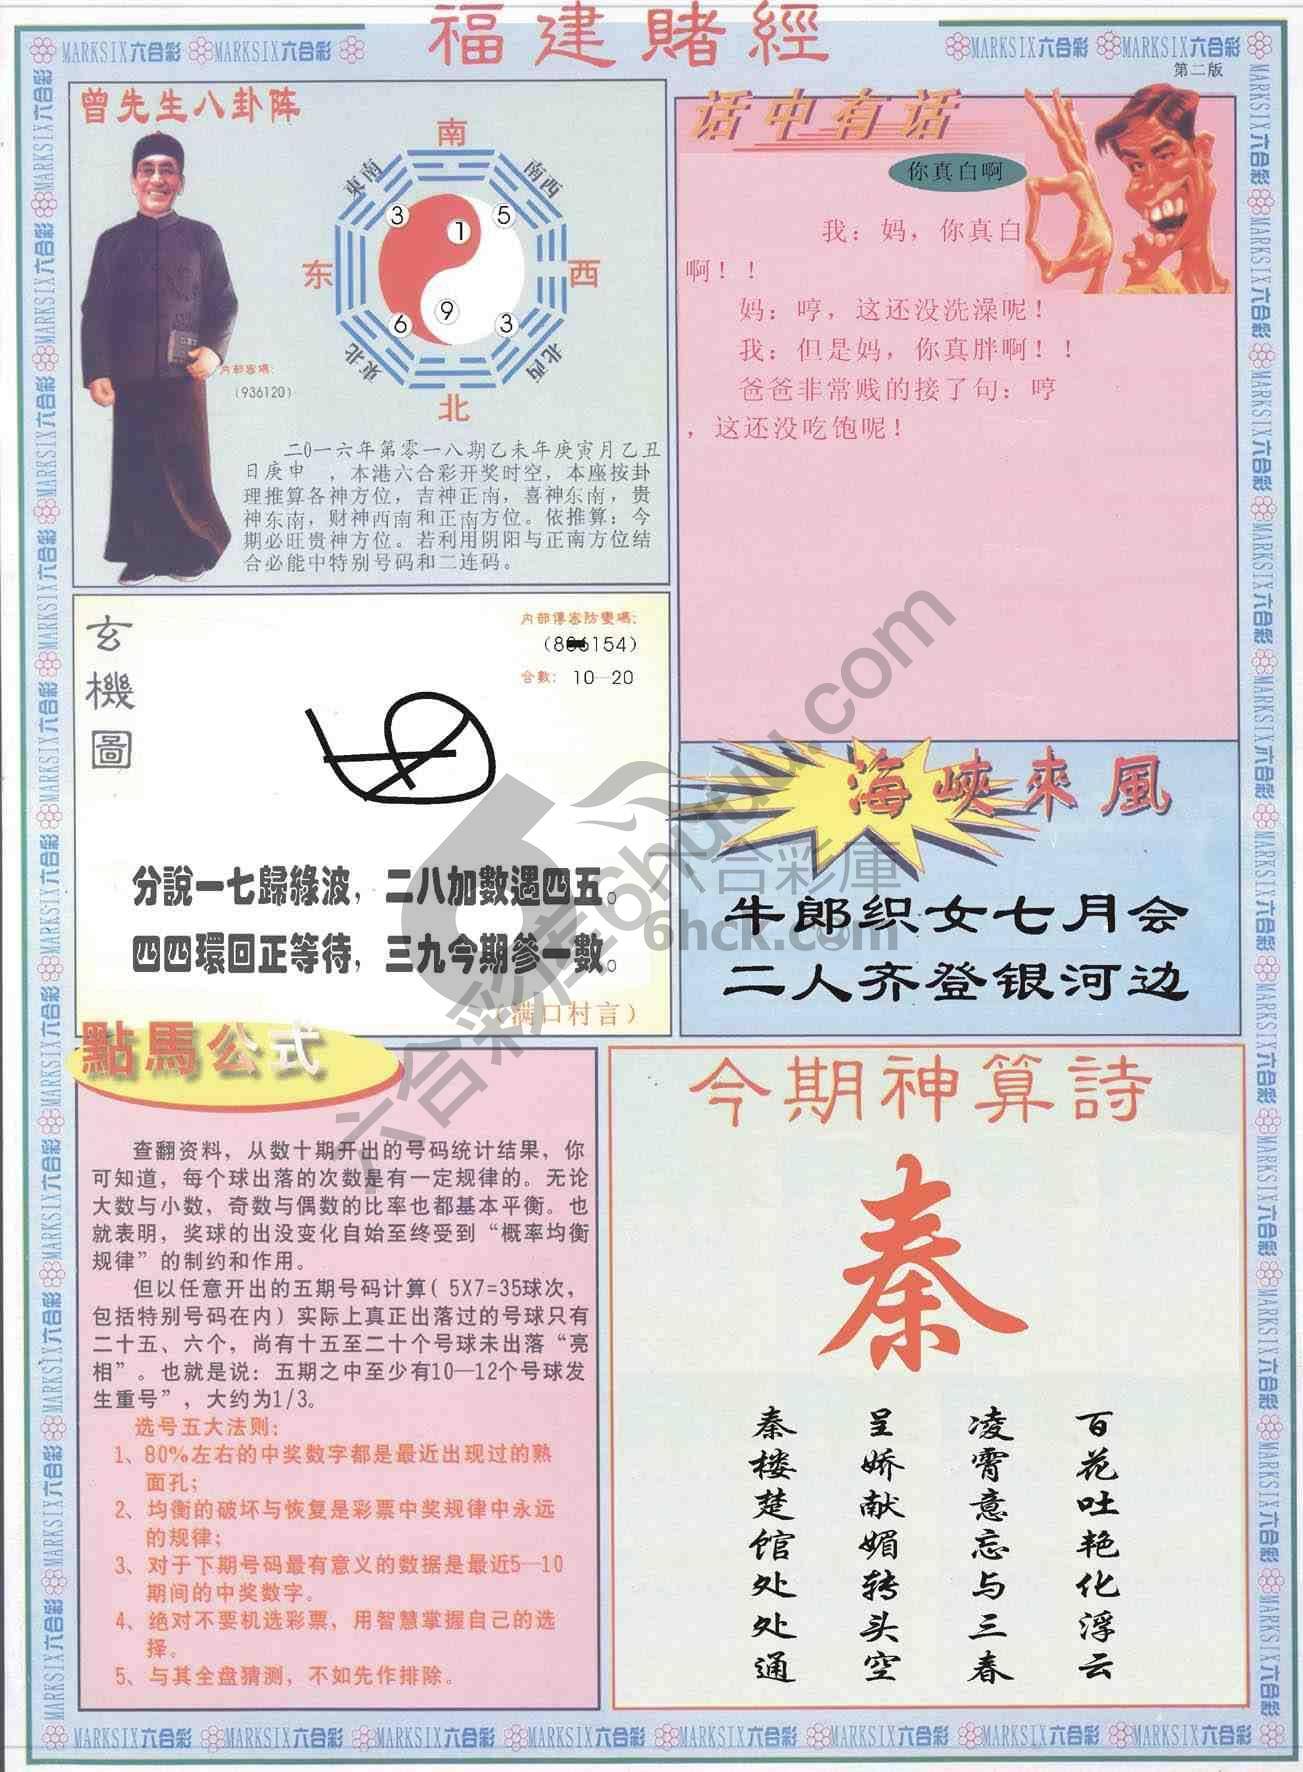 福建賭經
第二版
MARKSIX六合彩 MARKSIX六合彩 MARKSIX六合彩 MARKSIX六合彩
曾先生八卦阵
南
東南
南西
3
1
5
东
西
6
9
3
東北
北西
北
内部密碼:
(936120)
二0一六年第零一八期乙未年庚寅月乙丑
日庚申 ，本港六合彩开奖时空，本座按卦
理推算各神方位，吉神正南，喜神东南，贵
神东南，财神西南和正南方位。依推算：今
期必旺贵神方位。若利用阴阳与正南方位结
合必能中特别号码和二连码。
话中有话
你真白啊
我：妈，你真白
啊！！
妈：哼，这还没洗澡呢！
我：但是妈，你真胖啊！！
爸爸非常贱的接了句：哼
，这还没吃饱呢！
玄機圖
内部傳密防變碼:
6154)
合數: 10—20
分說一七歸綠波，二八加數遇四五。
四四環回正等待，三九今期參一數。
（满口村言）
海峽來風
牛郎织女七月会
二人齐登银河边
點馬公式
查翻资料，从数十期开出的号码统计结果，你
可知道，每个球出落的次数是有一定规律的。无论
大数与小数，奇数与偶数的比率也都基本平衡。也
就表明，奖球的出没变化自始至终受到“概率均衡
规律”的制约和作用。
但以任意开出的五期号码计算( 5X7=35球次，
包括特别号码在内）实际上真正出落过的号球只有
二十五、六个，尚有十五至二十个号球未出落“亮
相”。也就是说：五期之中至少有10—12个号球发
生重号”，大约为1/3。
选号五大法则:
1、80%左右的中奖数字都是最近出现过的熟
面孔;
2、均衡的破坏与恢复是彩票中奖规律中永远
的规律;
3、对于下期号码最有意义的数据是最近5—10
期间的中奖数字。
4、绝对不要机选彩票，用智慧掌握自己的选
择。
5、与其全盘猜测，不如先作排除。
今期神算詩
秦
秦楼楚馆处处通
呈娇献媚转头空
凌霄意忘与三春
百花吐艳化浮云
六合彩库6huquu.com
六合彩庫
6hck.com
MARKSIX六合彩 MARKSIX六合彩 MARKSIX六合彩 MARKSIX六合彩 MARKSIX六合彩 MARKSIX六合彩 MARKSIX六合彩 MARKSIX六合彩